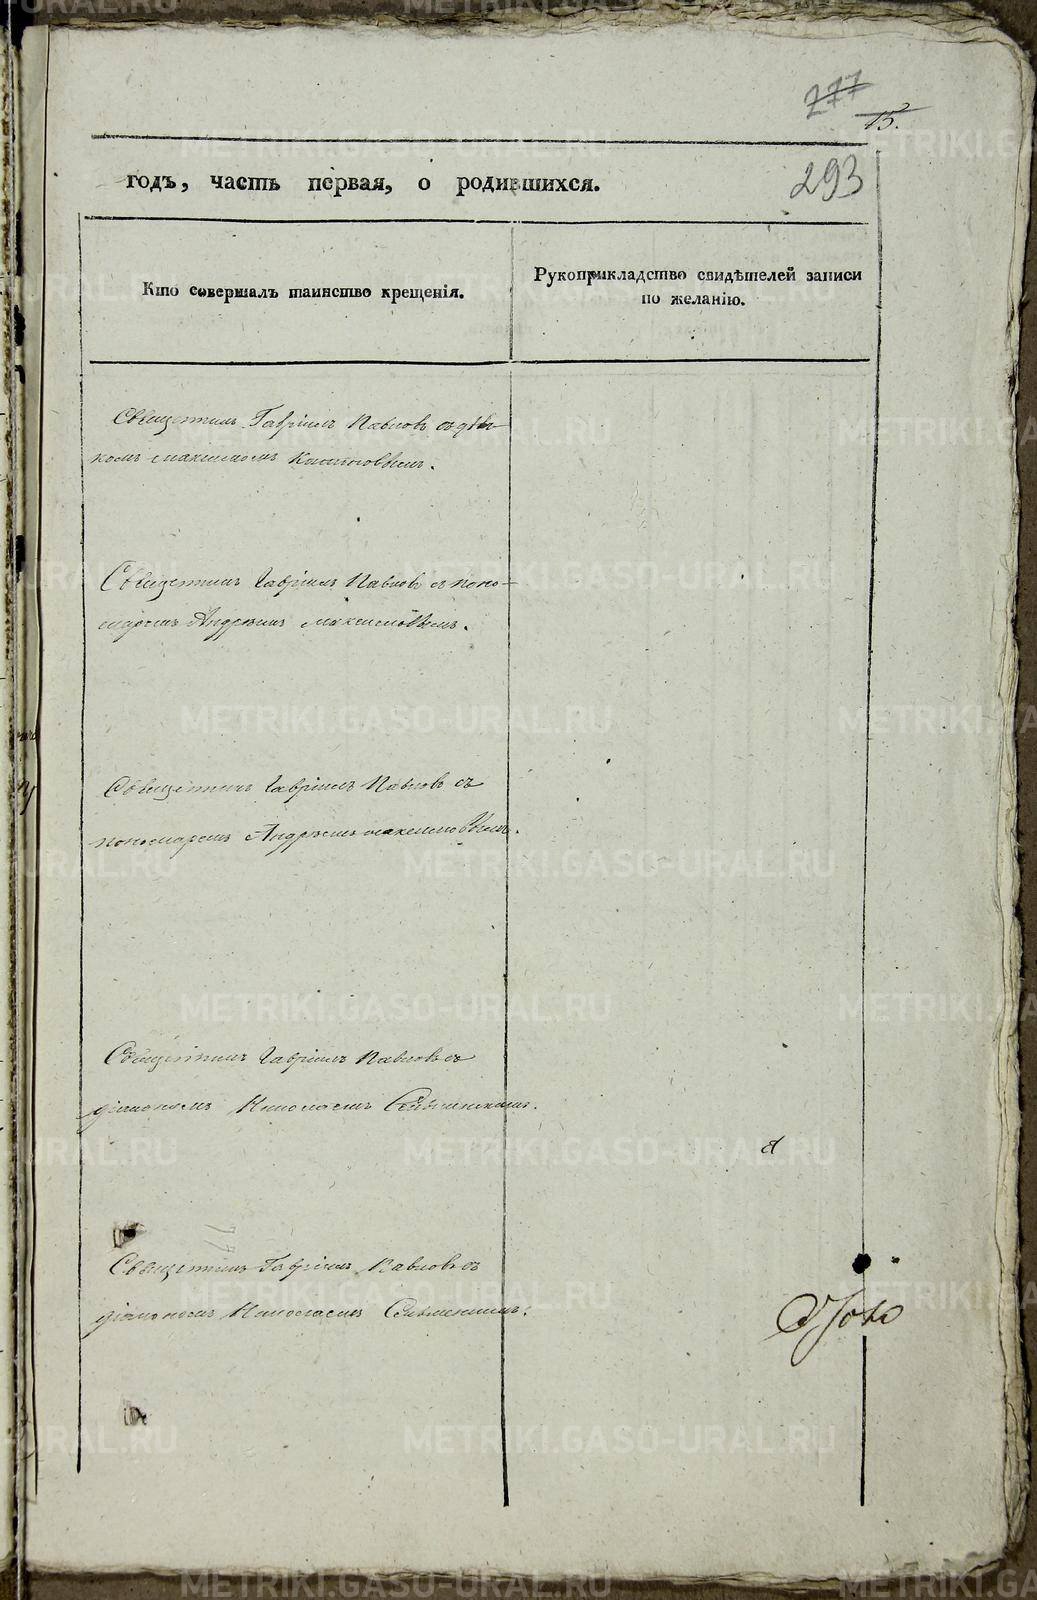 277
15.
293
годъ, часть первая, о родившихся.
Кто совершалъ таинство крещенія.
Рукоприкладство свидѣтелей записи
по желанію.
Священникъ Гавріилъ Павловъ съ дья-
комъ
Священникъ Гавріилъ Павловъ съ поно-
маремъ Андреемъ Максимовымъ.
Священникъ Гавріилъ Павловъ съ
пономаремъ Андреемъ Максимовымъ.
Священникъ Гавріилъ Павловъ съ
діакономъ Николаемъ
Священникъ Гавріилъ Павловъ съ
діакономъ Николаемъ
METRIKI.GASO-URAL.RU